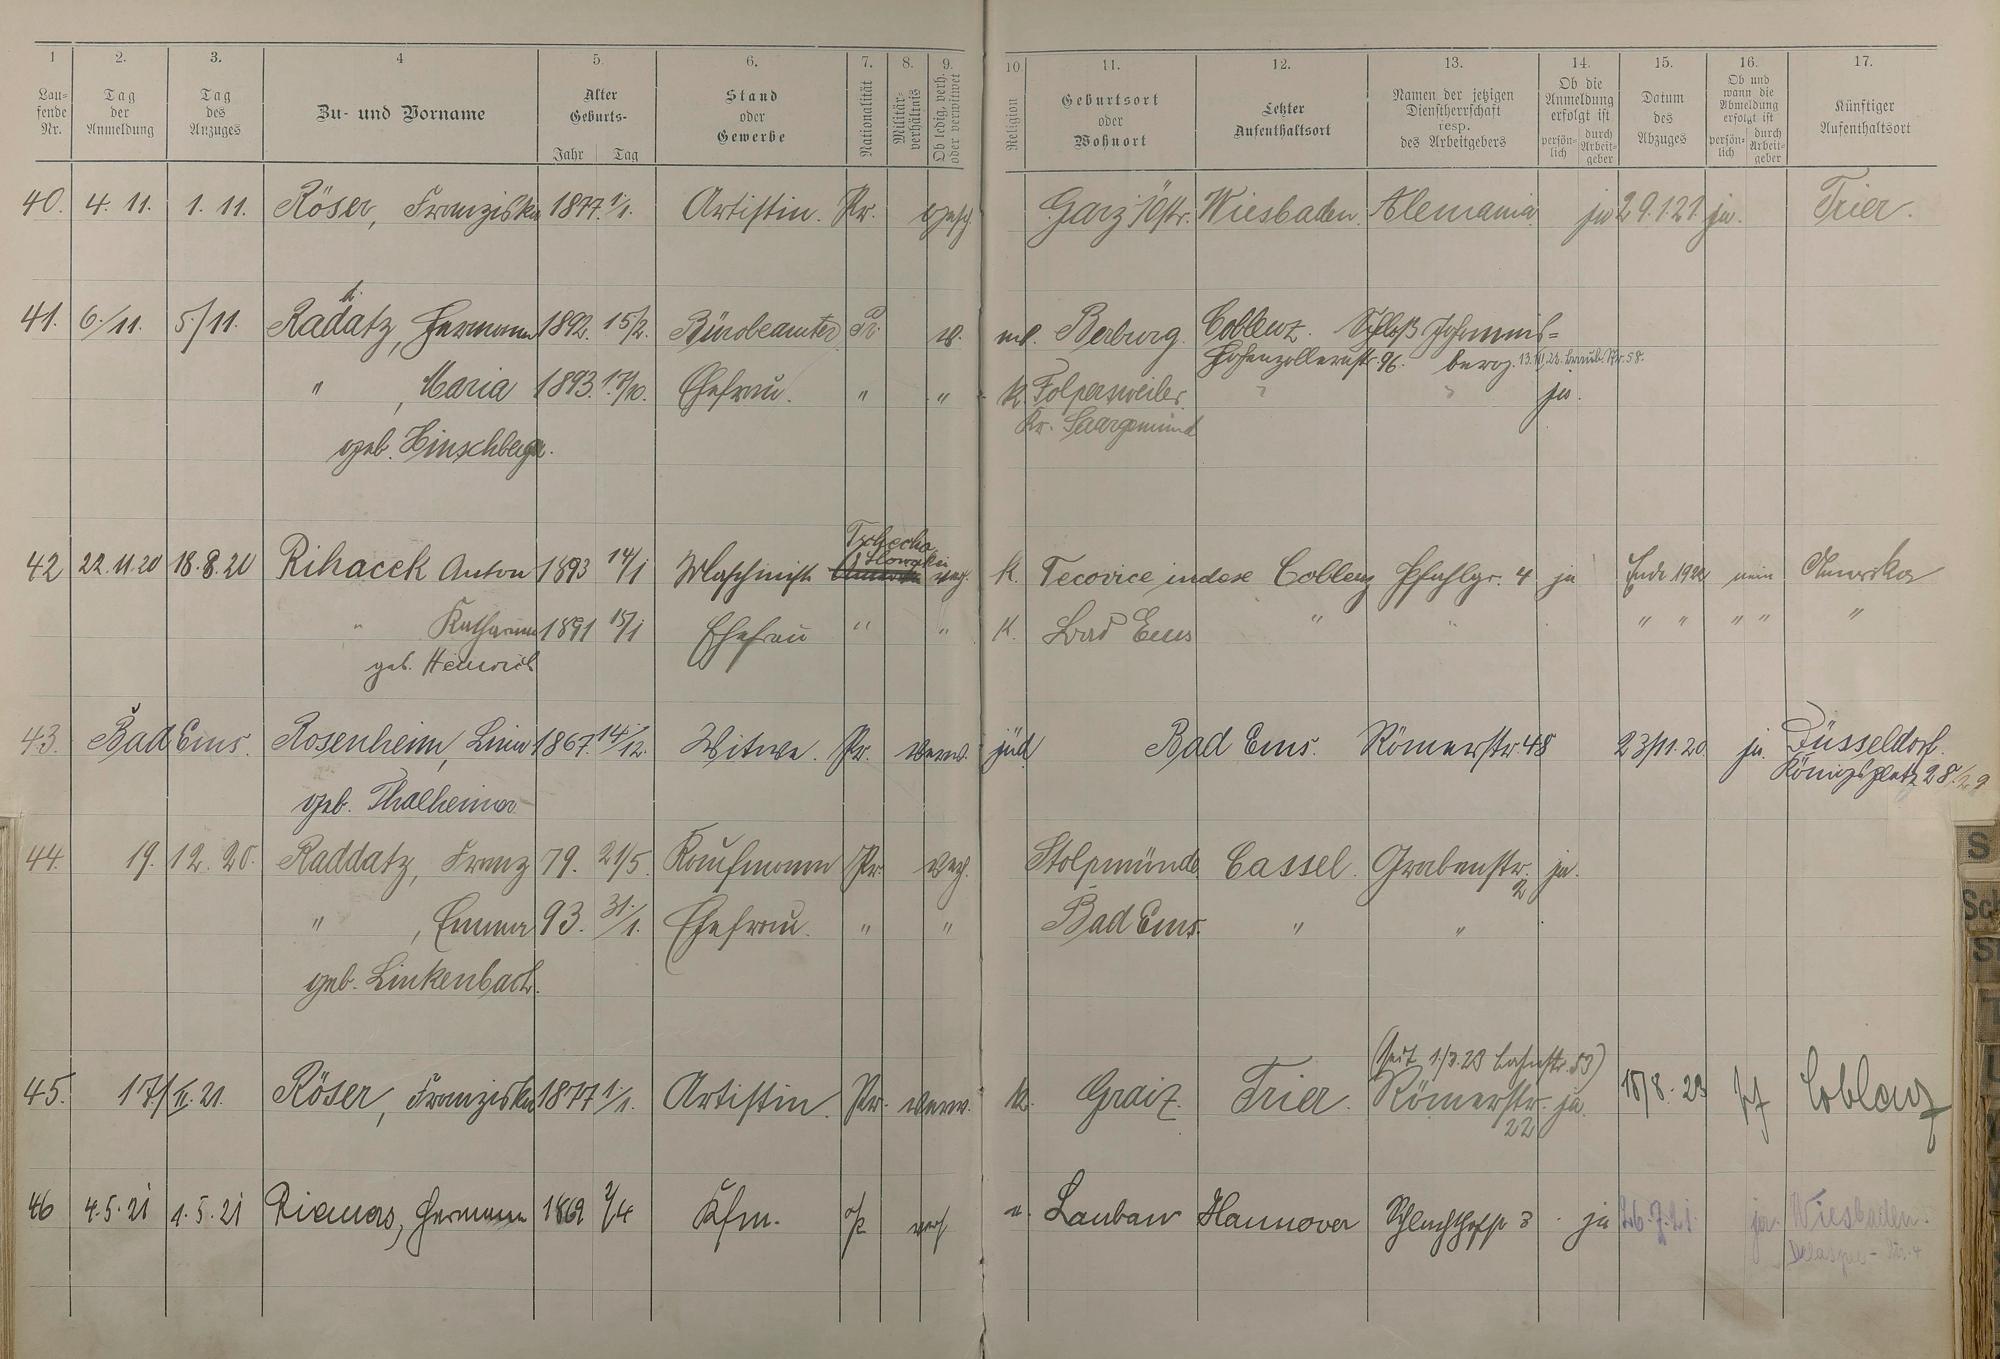 1 2. 3. 4 5. 6. 7. 8. 9. 10 11. 12. 13. 14. 15. 16. 17.
Lau-
fende
Nr.
Tag
der
Anmeldung
Tag
des
Anzuges
Zu- und Vorname
Alter
Geburts-
Jahr Tag
Stand
oder
Gewerbe
Nationalität
Militär-
verhältnis
Ob ledig, verh.
oder verwitwet
Religion
Geburtsort
oder
Wohnort
Letzter
Aufenthaltsort
Namen der jetzigen
Dienstherrschaft
resp.
des Arbeitgebers
Ob die
Anmeldung
erfolgt ist
persön-
lich
durch
Arbeit-
geber
Datum
des
Abzuges
Ob und
wann die
Abmeldung
erfolgt ist
persön-
lich
durch
Arbeit-
geber
Künftiger
Aufenthaltsort
40. 4. 11. 1. 11. Röser, Franziska 1877. 1/1. Artistin. Pr. gesch. Wiesbaden. Alemania ja 29.1.21 ja. Trier.
41. 6./11. 5/11. Radatz, Hermann 1892. 15/2. Bürobeamter Pr. v. Berburg. Coblenz. Schloß Johannis-
d.
Hohenzollernstr. 96. berg.
" , Maria 1893. 17/10. Ehefrau. " " k. Folpersweiler. " " ja.
Kr. Saargemünd
geb. Hinschberger.
Tschecho
Slowakei
42 22.11.20 18.8.20 Rihacek Anton 1893 14/1 Maschinist verh. k. Tecovice Coblenz Pfuhlgr. 4 ja Ende 1922 nein Amerika
" Katharina 1891 15/1 Ehefrau " " k. Bad Ems " " " " " " "
geb. Heinrich
43. Bad Ems. Rosenheim, Lina 1867. 14/12. Witwe. Pr. verw. jüd. Bad Ems. Römerstr. 48 23/11.20 ja. Düsseldorf.
Königsplatz 28/29
geb. Thalheimer
44. 19. 12. 20. Raddatz, Franz 79. 21/5. Kaufmann Pr. verh. Stolpmünde. Cassel. Grabenstr. ja.
2
" , Emma 93. 31./1. Ehefrau. " " Bad Ems. " "
geb. Linkenbach.
(seit 1./3.23 Lahnstr. 53)
45. 17/II.21. Röser, Franziska 1877 1./1. Artistin. Pr. verw. k. Graiz. Trier. Römerstr. ja. 15/8.23 Coblenz
22
46 4.5.21 1.5.21 Hermann 1869 2/4 Kfm. verh. Lauban Hannover 3 ja 26.7.21. ja. Wiesbaden.
S
Sch